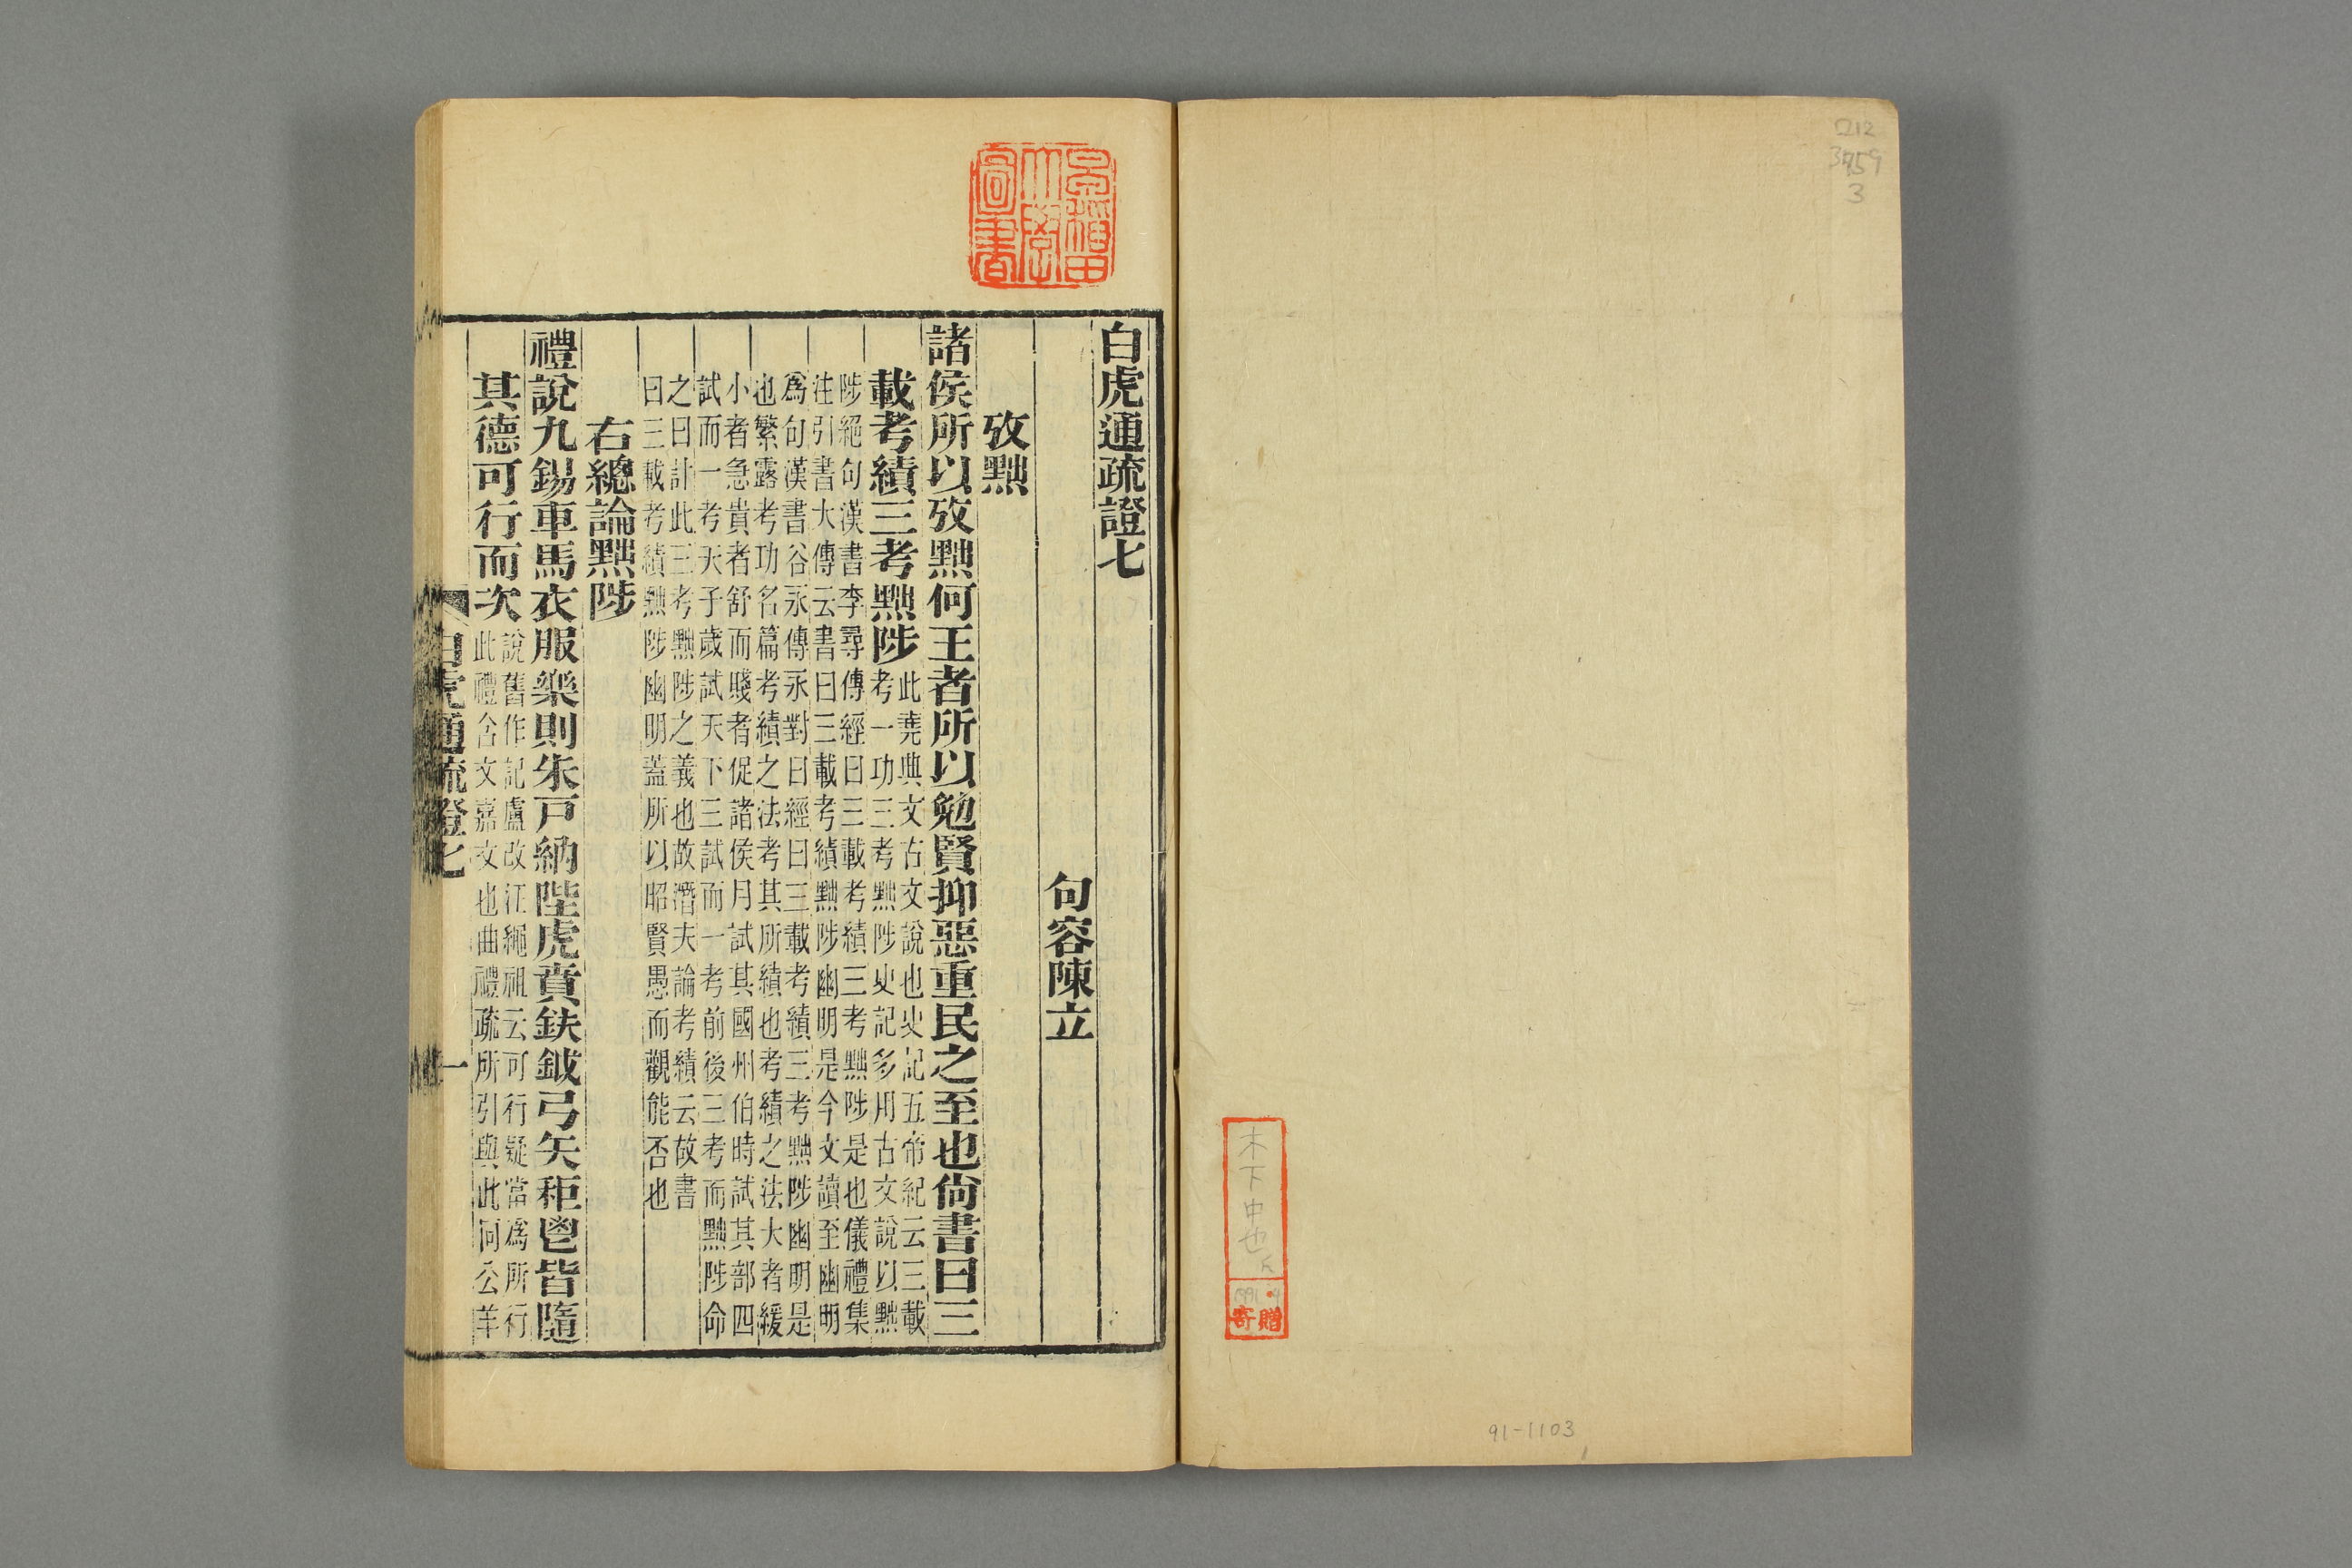 白虎通疏證七
句容陳立
攷黜
諸侯所以攷黜何王者所以勉賢抑惡重民之至也尙書曰三
載考績三考黜陟
此堯典文古文說也史記五帝紀云三載
考一功三考黜陟史記多用古文說以黜
陟絕句漢書李尋傳經曰三載考績三考黜陟是也儀禮集
注引書大傳云書曰三載考績黜陟幽明是今文讀至幽明
爲句漢書谷永傳永對曰經曰三載考績三考黜陟幽明是
也繁露考功名篇考績之法考其所績也考績之法大者緩
小者急貴者舒而賤者促諸侯月試其國州伯時試其部四
試而一考天子歲試天下三試而一考前後三考而黜陟命
之曰計此三考黜陟之義也故潛夫論考績云故書
曰三載考績黜陟幽明蓋所以昭賢愚而觀能否也
右總論黜陟
禮說九錫車馬衣服樂則朱戸納陛虎賁鈇鉞弓矢秬鬯皆隨
其德可行而次
說舊作記盧改江繩祖云可行疑當爲所行
此禮含文嘉文也曲禮疏所引與此同公羊
白虎通疏證七
一
早稻田
大學
圖書
212
3459
3
木下中也氏
寄贈
91-1103